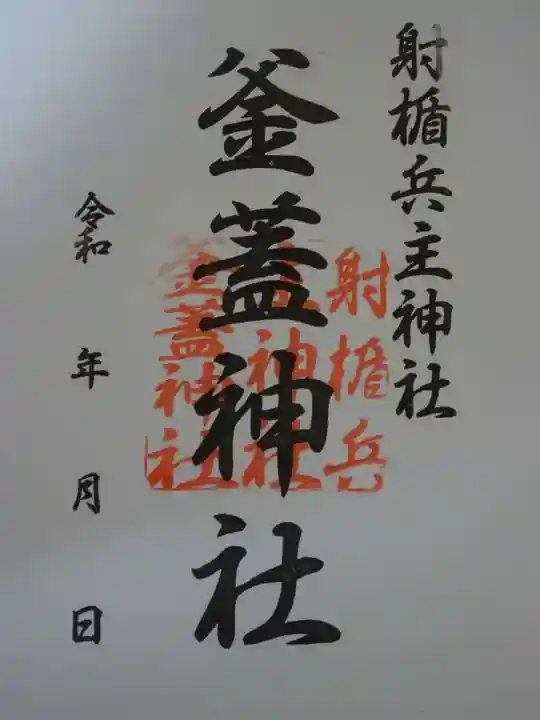 射楯兵主神社
釜蓋神社
令和　年　月　日
射楯兵
主神社
釜蓋神社